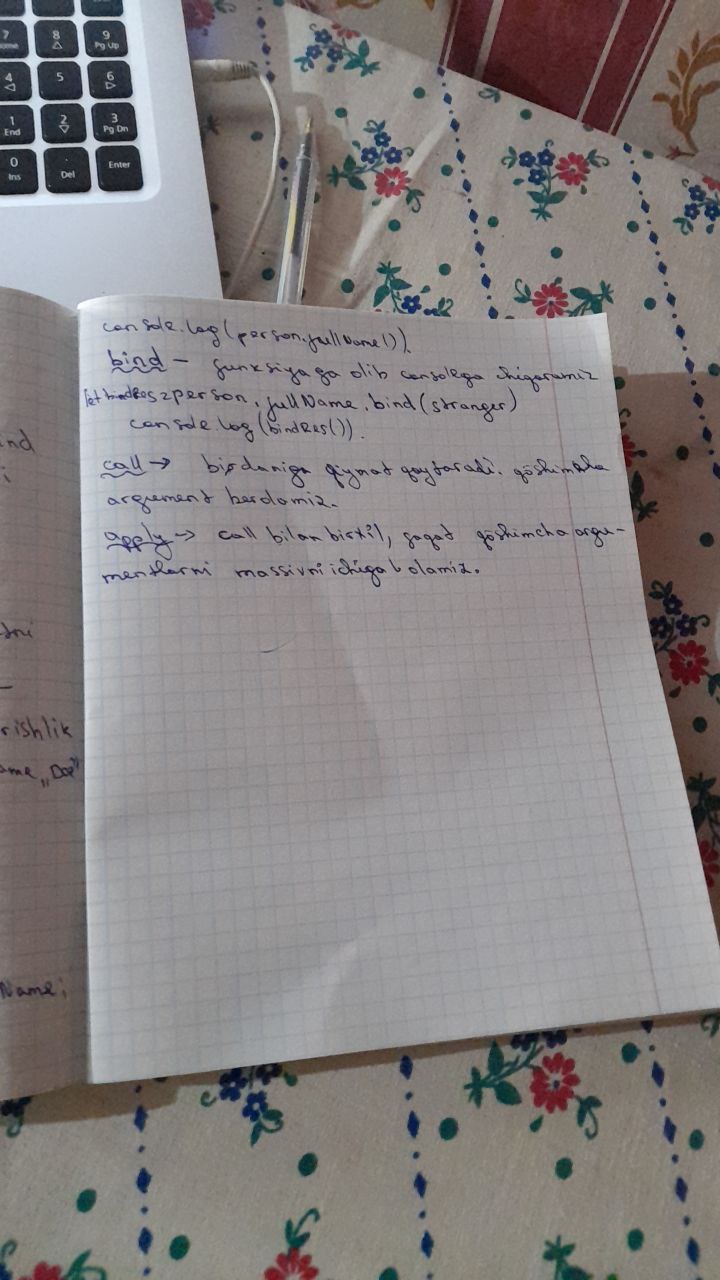 7
8
9
Pg Up
4
5
6
1
End
2
3
Pg Dn
0
Ins
.
Del
Enter
console.log(person.fullName()).
bind – funksiyaga olib consolega chiqaramiz
let bindRes = person.fullName.bind(stranger)
console.log(bindRes()).
call → birdaniga qiymat qaytaradi. qöshimcha
argument berolamiz.
apply → call bilan bir xil, faqat qöshimcha argu-
mentlarni massivni ichiga olamiz.
ind
rishlik
ame „Doe"
Name;